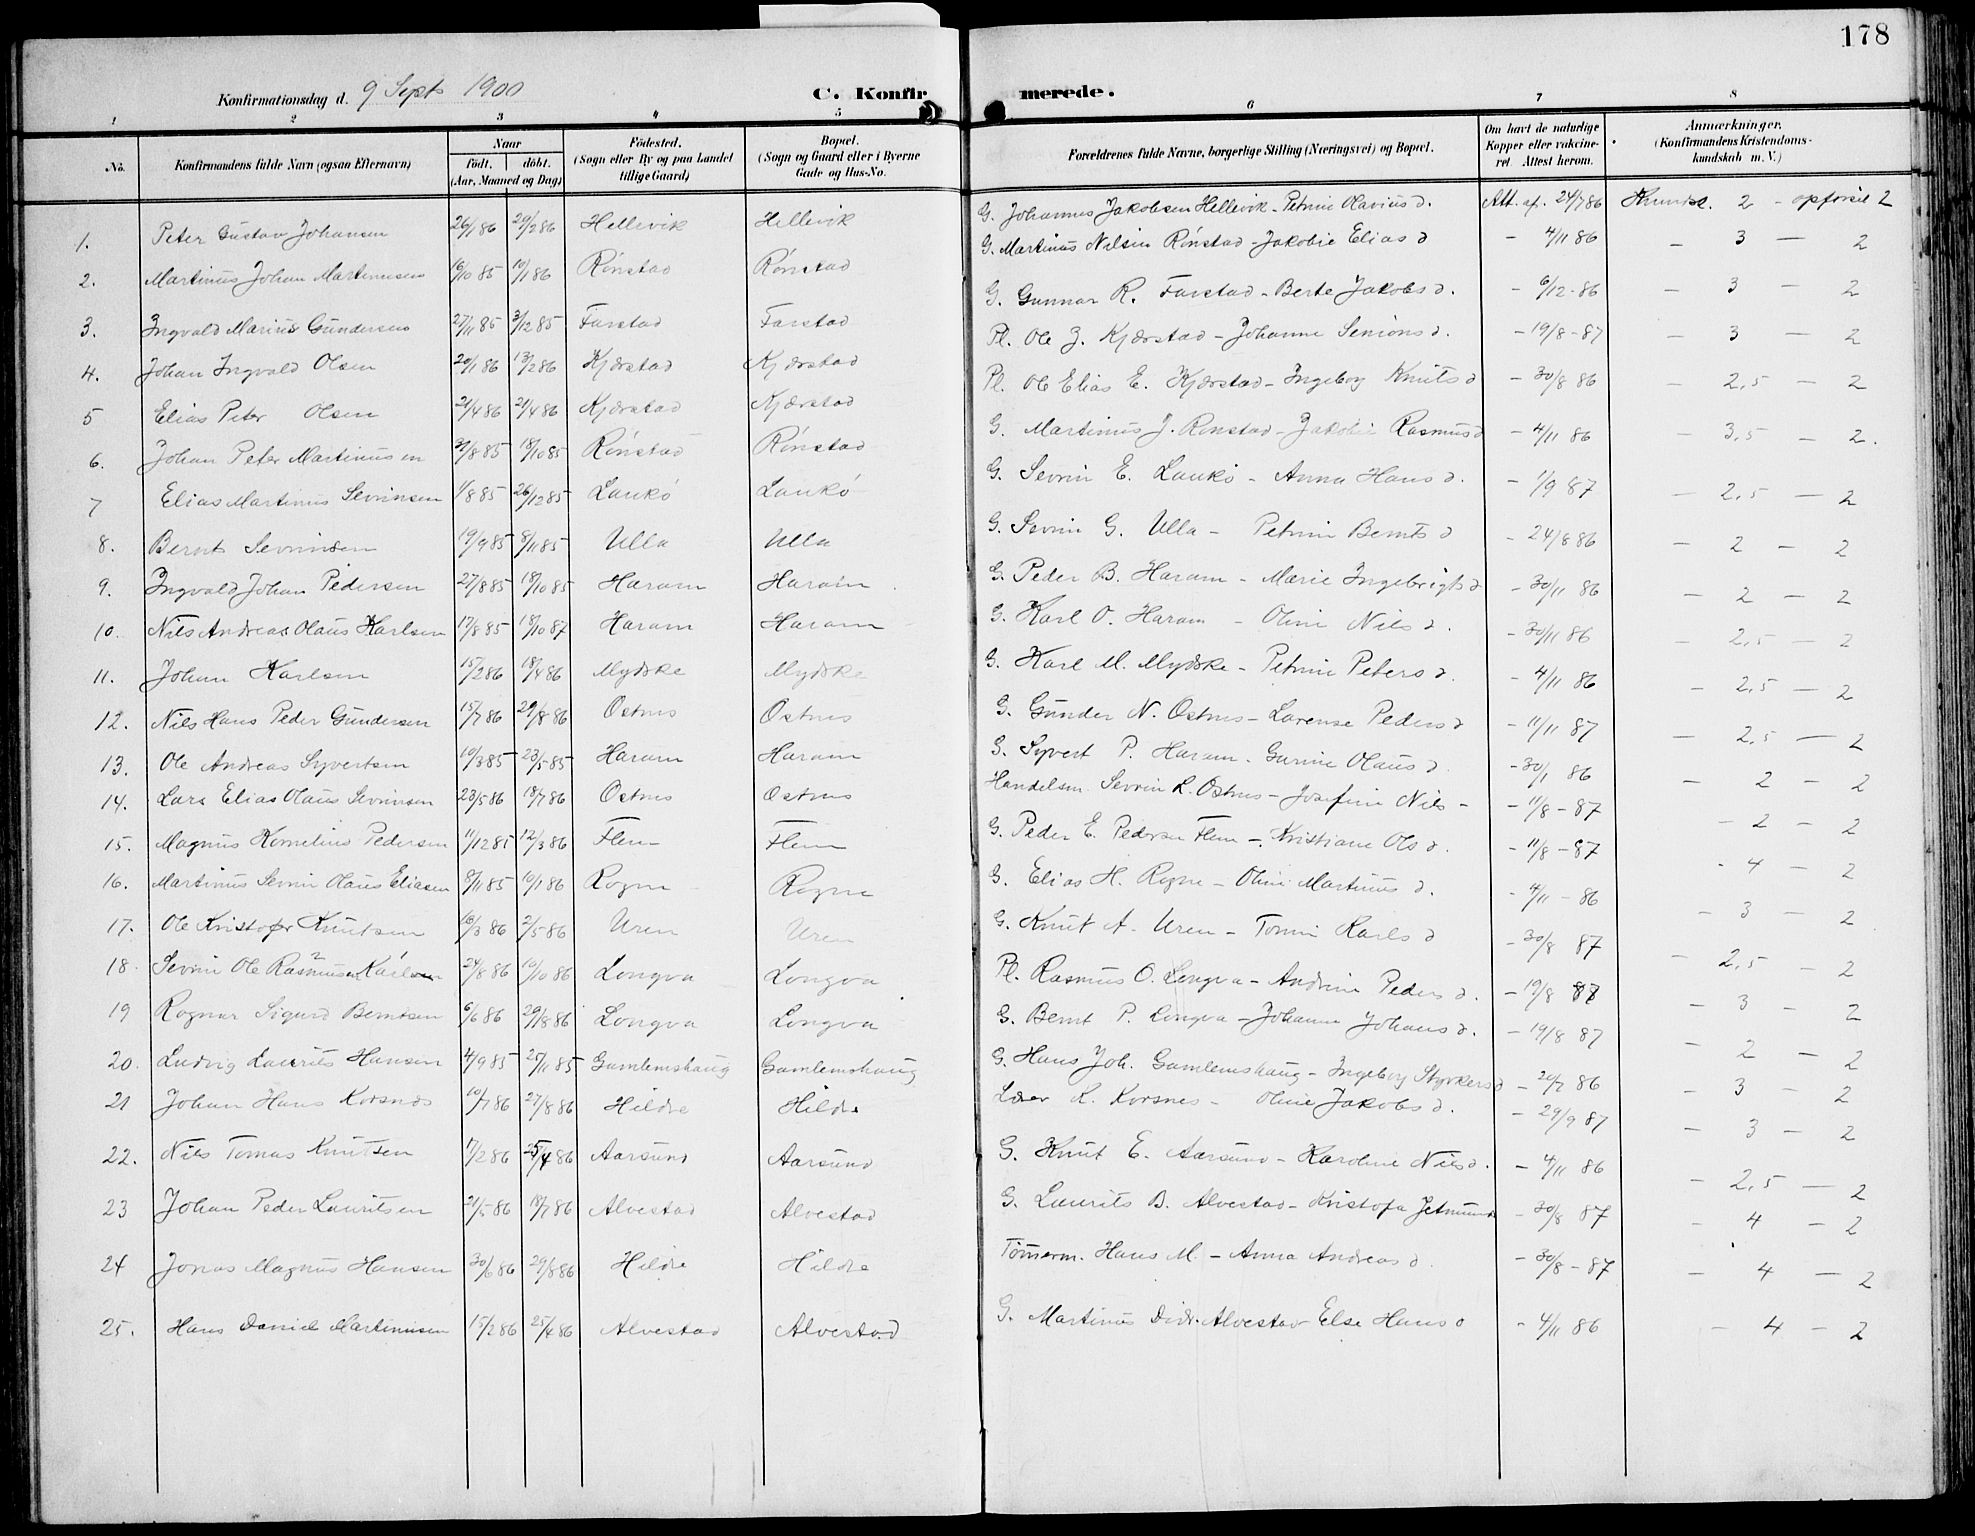 178
Konfirmationsdag d. 9 Sept 1900 C. Konfirmerede.
1 2 3 4 5 6 7 8
No. Konfirmandens fulde Navn (ogsaa Efternavn) Naar født. døbt. (Aar, Maaned og Dag) Fødested. (Sogn eller By og paa Landet tillige Gaard) Bopæl. (Sogn og Gaard eller i Byerne Gade og Hus-No. Forældrenes fulde Navne, borgerlige Stilling (Næringsvei) og Bopæl. Om havt de naturlige Kopper eller vakcineret. Attest herom. Anmærkninger. (Konfirmandens Kristendomskundskab m. V.)
1. Peter Gustav Johansen 26/1 86 29/2 86 Hellevik Hellevik G. Johannes Jakobsen Hellevik - Petrine Olavius d. Att. af. 24/7 86 Kundsk. 2 - opførsel 2
2. Martinus Johan Martinusen 16/10 85 10/1 86 Rønstad Rønstad G. Martinus Nilsen Rønstad - Jakobie Elias d - 4/11 86 - 3 - 2
3. Ingvald Marius Gundersen 27/11 85 3/12 85 Farstad Farstad G. Gunnar R. Farstad - Berte Jakobs d. - 6/12 - 86 - 3 - 2
4. Johan Ingvald Olsen 20/1 86 13/2 86 Kjærstad Kjærstad Pl. Ole J. Kjærstad - Johanne Simons d. - 19/8 - 87 - 3 - 2
5 Elias Peter Olsen 21/4 86 21/4 86 Kjærstad Kjærstad Pl. Ole Elias E. Kjærstad - Ingeborg Knuts d - 30/8 86 - 2,5 - 2
6. Johan Peter Martinusen 30/8 85 18/10 85 Rønstad Rønstad G. Martinus J. Rønstad - Jakobie Rasmus d - 4/11 86 - 3,5 - 2.
7 Elias Martinus Sevrinsen 1/8 85 26/12 85 Laukø Laukø G. Sevrin E. Laukø - Anna Hans d. - 1/9 87 - 2,5 - 2
8. Bernt Sevrinsen 19/9 85 8/11 85 Ulla Ulla G. Sevrin G. Ulla - Petrine Bernts d - 24/8 86 - 2 - 2
9. Ingvald Johan Pedersen 27/8 85 18/10 85 Haram Haram G. Peder B. Haram - Marie Ingebrigts d - 30/11 86 - 2 - 2
10. Nils Andreas Olaus Karlsen 17/8 85 18/10 87 Haram Haram G. Karl O. Haram - Oline Nils d. - 30/11 86 - 2,5 - 2
11. Johan Karlsen 15/2 86 18/4 86 Mydske Mydske G. Karl M. Mydske - Petrine Peters d. - 4/11 86 - 2,5 - 2
12. Nils Hans Peder Gundersen 15/7 86 29/8 86 Ostnes Ostnes G. Gunder N. Ostnes - Lorense Peders d - 11/11 87 - 2,5 - 2
13. Ole Andreas Syvertsen 10/3 85 23/5 85 Haram Haram G. Syvert P. Haram - Gurine Olaus d. - 30/1 86 - 2 - 2
14. Lars Elias Olaus Sevrinsen 23/5 86 18/7 86 Ostnes Ostnes Handelsm. Sevrin L. Ostnes - Josefine Nils - - 11/8 - 87 - 2 - 2
15. Magnus Kornelius Pedersen 11/12 85 12/3 86 Flem Flem G. Peder E. Pedersen Flem - Kristiane Ols d. - 11/8 - 87 - 4 - 2
16. Martinus Sevrin Olaus Eliasen 8/11 85 10/1 86 Rogne Rogne G. Elias H. Rogne - Oline Martinus d. - 4/11 - 86 - 3 - 2
17. Ole Kristofer Knutsen 16/3 86 2/5 86 Uren Uren G. Knut A. Uren - Tomine Karls d - 30/8 87 - 2,5 - 2
18. Sevrin Ole Rasmusen Karlsen 24/8 86 10/10 86 Longva Longva Pl. Rasmus O. Longva - Andrine Peders d. - 19/8 87 - 3 - 2
19 Ragnar Sigurd Berntsen 6/6 86 29/8 86 Longva Longva G. Bernt P. Longva - Johanne Johans d. - 19/8 87 - 2 - 2
20. Ludvig Laurits Hansen 4/9 85 25/11 85 Gamlemshaug Gamlemshaug G. Hans Joh. Gamlemshaug - Ingeborg Styrkers d - 20/7 86 - 3 - 2
21 Johan Hans Korsnes 10/7 86 27/8 86 Hildre Hildre Lærer K. Korsnes - Oline Jakobs d. - 29/9 87 - 3 - 2
22. Nils Tomas Knutsen 7/2 86 25/4 86 Aarsund Aarsund G. Knut E. Aarsund - Karoline Nils d. - 4/11 86 - 2,5 - 2
23 Johan Peder Lauritsen 21/5 86 18/7 86 Alvestad Alvestad G. Laurits B. Alvestad - Kristofa Jetmunds - 30/8 87 - 4 - 2
24 Jonas Magnus Hansen 30/6 86 29/8 86 Hildre Hildre Tømerm. Hans M. - Anna Andreas d. - 30/8 - 87 - 4 - 2
25. Hans Daniel Martinusen 15/2 86 25/4 86 Alvestad Alvestad G. Martinus Didr. Alvestav Else Hans d - 4/11 86 - 4 - 2